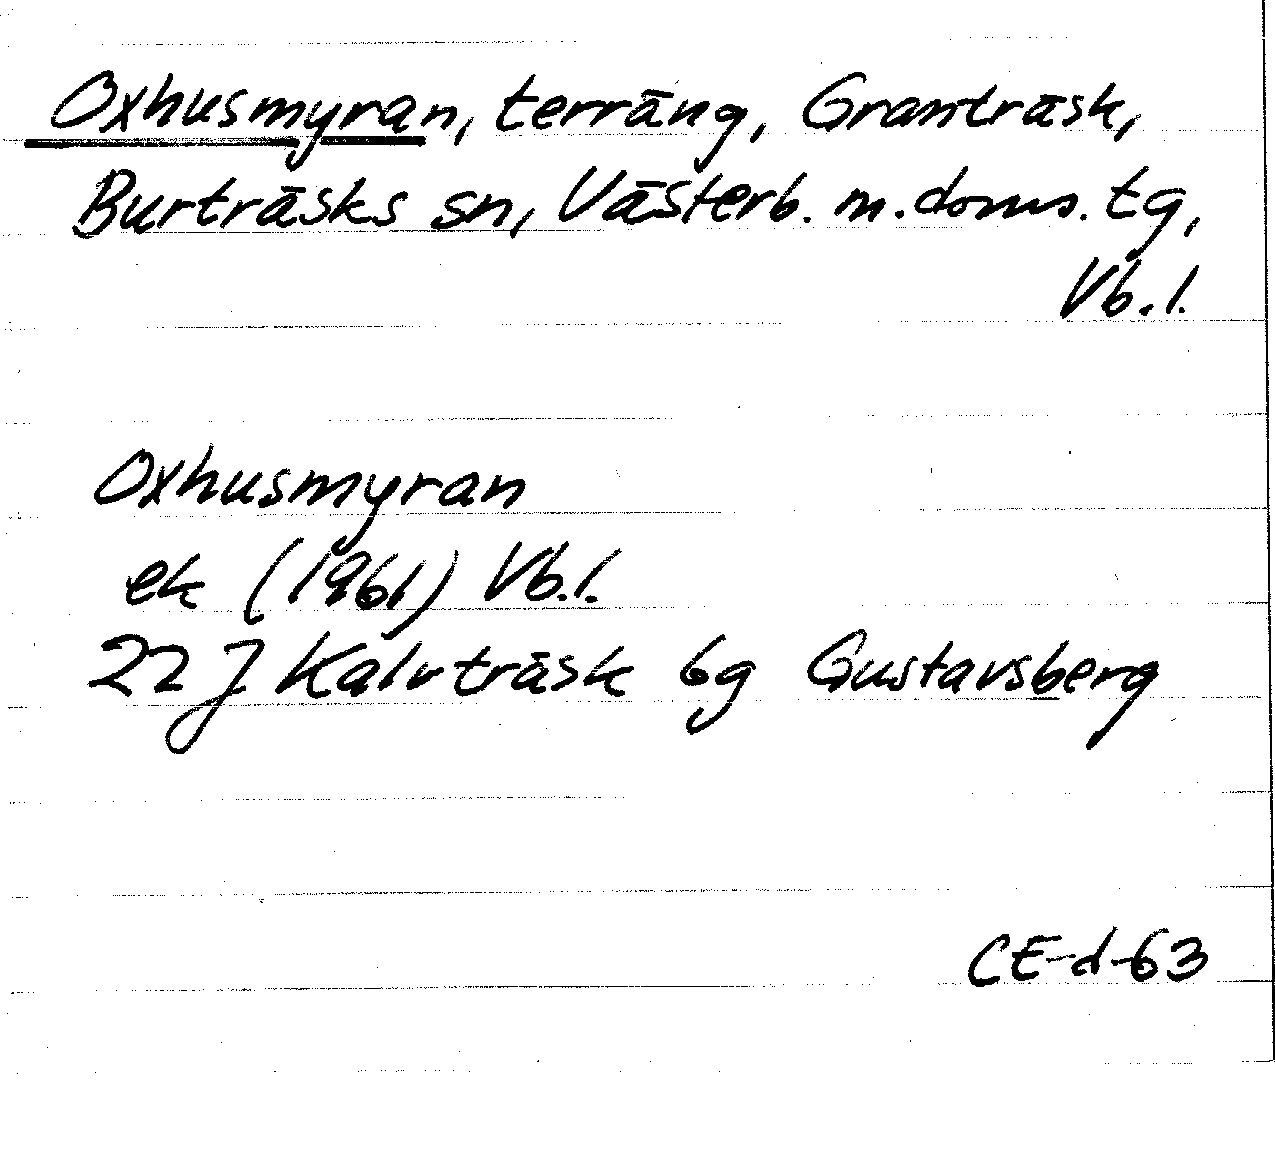 Oxhusmyran, terräng, Granträsk,
Burträsks sn, Västerb. m. doms. tg,
Vb. l.
Oxhusmyran
ek (1961) Vb. l.
22 J Kalvträsk 6g Gustavsberg
CE-d-63